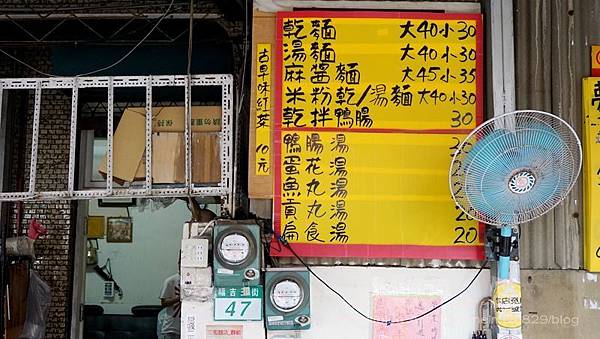 乾麵 大40小30
湯麵 大40小30
麻醬麵 大45小35
米粉乾/湯麵 大40小30
乾拌鴨腸 30
鴨腸湯
蛋花湯
魚丸湯
貢丸湯 20
扁食湯 20
古早味紅茶 10元
福吉街
47
829/blog